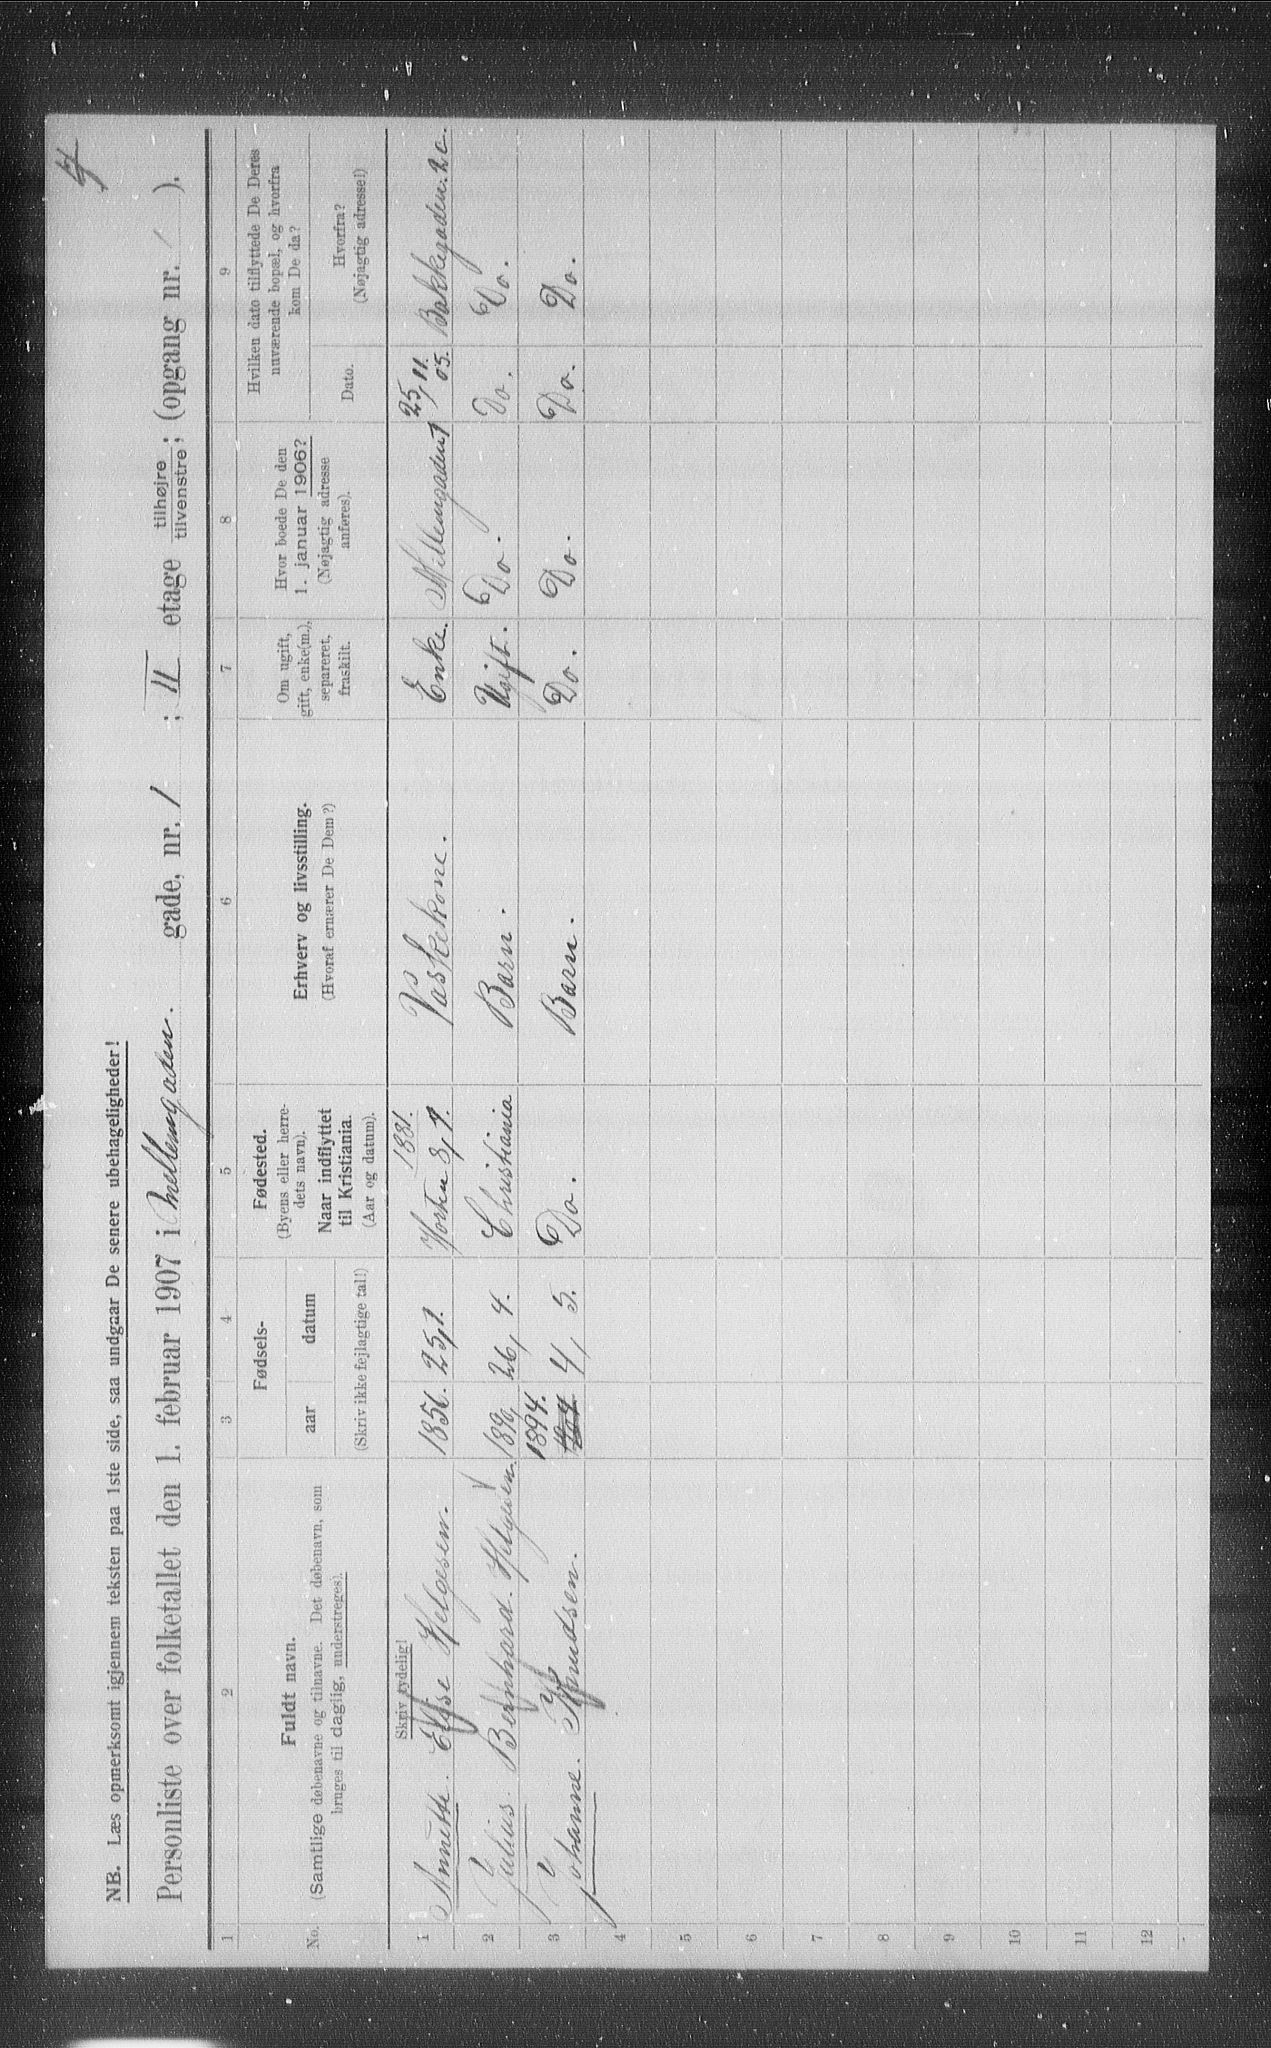 4
NB. Læs opmerksomt igjennem teksten paa 1ste side, saa undgaar De senere ubehageligheder!
Personliste over folketallet den 1. februar 1907 i Mellemgaden. gade, nr. 1 ; II etage tilhøjre tilvenstre; (opgang nr. / ).
1 2 3 4 5 6 7 8 9
No.
Fuldt navn.
(Samtlige døbenavne og tilnavne. Det døbenavn, som
bruges til daglig, understreges).
Fødsels-
aar datum
(Skriv ikke fejlagtige tal!)
Fødested.
(Byens eller herre-
dets navn).
Naar indflyttet
til Kristiania.
(Aar og datum).
Erhverv og livsstilling.
(Hvoraf ernærer De Dem?)
Om ugift,
gift, enke(m.),
separeret,
fraskilt.
Hvor boede De den
1. januar 1906?
(Nøjagtig adresse
anføres).
Hvilken dato tilflyttede De Deres
nuværende bopæl, og hvorfra
kom De da?
Dato.
Hvorfra?
(Nøjagtig adresse!)
Skriv tydelig!
1 Annette. Elise Helgesen. 1856. 25/1. Horten 8/9. 1881. Vaskekone. Enke. Mellemgaden 1 25/11. 05. Bakkegaden: 2c.
2 Julius. Bernhard. Helgesen. 1890 26/4. Christiania Barn. Ugift. Do. Do. Do.
3 Johanne. Knudsen. 1894. 4/5. Do. Barn. Do. Do. Do. Do.
4
5
6
7
8
9
10
11
12